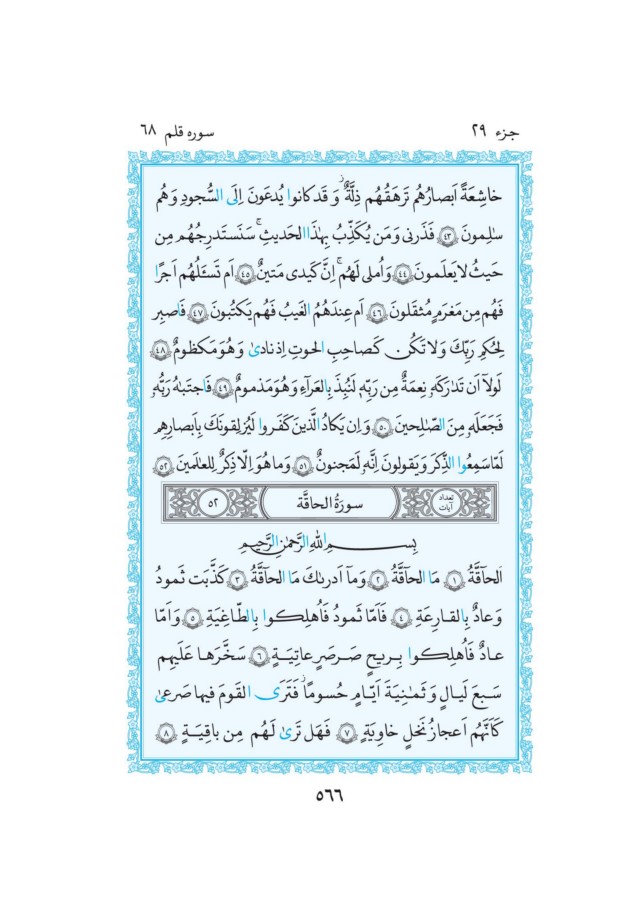 جزء ۲۹
سوره قلم ۶۸
خاشِعَةً اَبصارُهُم تَرهَقُهُم ذِلَّةٌ ۖ وَ قَد كانوا يُدعَونَ اِلَى السُّجودِ وَ هُم
سٰلِمونَ ﴿۴۳﴾ فَذَرنى وَ مَن يُكَذِّبُ بِهٰذَا الحَديثِ ۚ سَنَستَدرِجُهُم مِن
حَيثُ لا يَعلَمونَ ﴿۴۴﴾ وَ اُملى لَهُم ۚ اِنَّ كَيدى مَتينٌ ﴿۴۵﴾ اَم تَسـَٔلُهُم اَجرًا
فَهُم مِن مَغرَمٍ مُثقَلونَ ﴿۴۶﴾ اَم عِندَهُمُ الغَيبُ فَهُم يَكتُبونَ ﴿۴۷﴾ فَاصبِر
لِحُكمِ رَبِّكَ وَ لا تَكُن كَصاحِبِ الحوتِ اِذ نادىٰ وَ هُوَ مَكظومٌ ﴿۴۸﴾
لَولآ اَن تَدٰرَكَهٗ نِعمَةٌ مِن رَبِّهٖ لَنُبِذَ بِالعَرآءِ وَ هُوَ مَذمومٌ ﴿۴۹﴾ فَاجتَبٰهُ رَبُّهٗ
فَجَعَلَهٗ مِنَ الصّٰلِحينَ ﴿۵۰﴾ وَ اِن يَكادُ الَّذينَ كَفَروا لَيُزلِقونَكَ بِاَبصارِهِم
لَمّا سَمِعُوا الذِّكرَ وَ يَقولونَ اِنَّهٗ لَمَجنونٌ ﴿۵۱﴾ وَ ما هُوَ اِلّا ذِكرٌ لِلعٰلَمينَ ﴿۵۲﴾
تعداد آيات
سورَةُ الحاقَّة
۵۲
بِسمِ اللهِ الرَّحمٰنِ الرَّحيمِ
اَلحآقَّةُ ﴿۱﴾ مَا الحآقَّةُ ﴿۲﴾ وَ مآ اَدرىٰكَ مَا الحآقَّةُ ﴿۳﴾ كَذَّبَت ثَمودُ
وَ عادٌ بِالقارِعَةِ ﴿۴﴾ فَاَمّا ثَمودُ فَاُهلِكوا بِالطّاغِيَةِ ﴿۵﴾ وَ اَمّا
عادٌ فَاُهلِكوا بِريحٍ صَرصَرٍ عاتِيَةٍ ﴿۶﴾ سَخَّرَها عَلَيهِم
سَبعَ لَيالٍ وَ ثَمٰنِيَةَ اَيّامٍ حُسومًا ۖ فَتَرَى القَومَ فيها صَرعىٰ
كَاَنَّهُم اَعجازُ نَخلٍ خاوِيَةٍ ﴿۷﴾ فَهَل تَرىٰ لَهُم مِن باقِيَةٍ ﴿۸﴾
۵۶۶